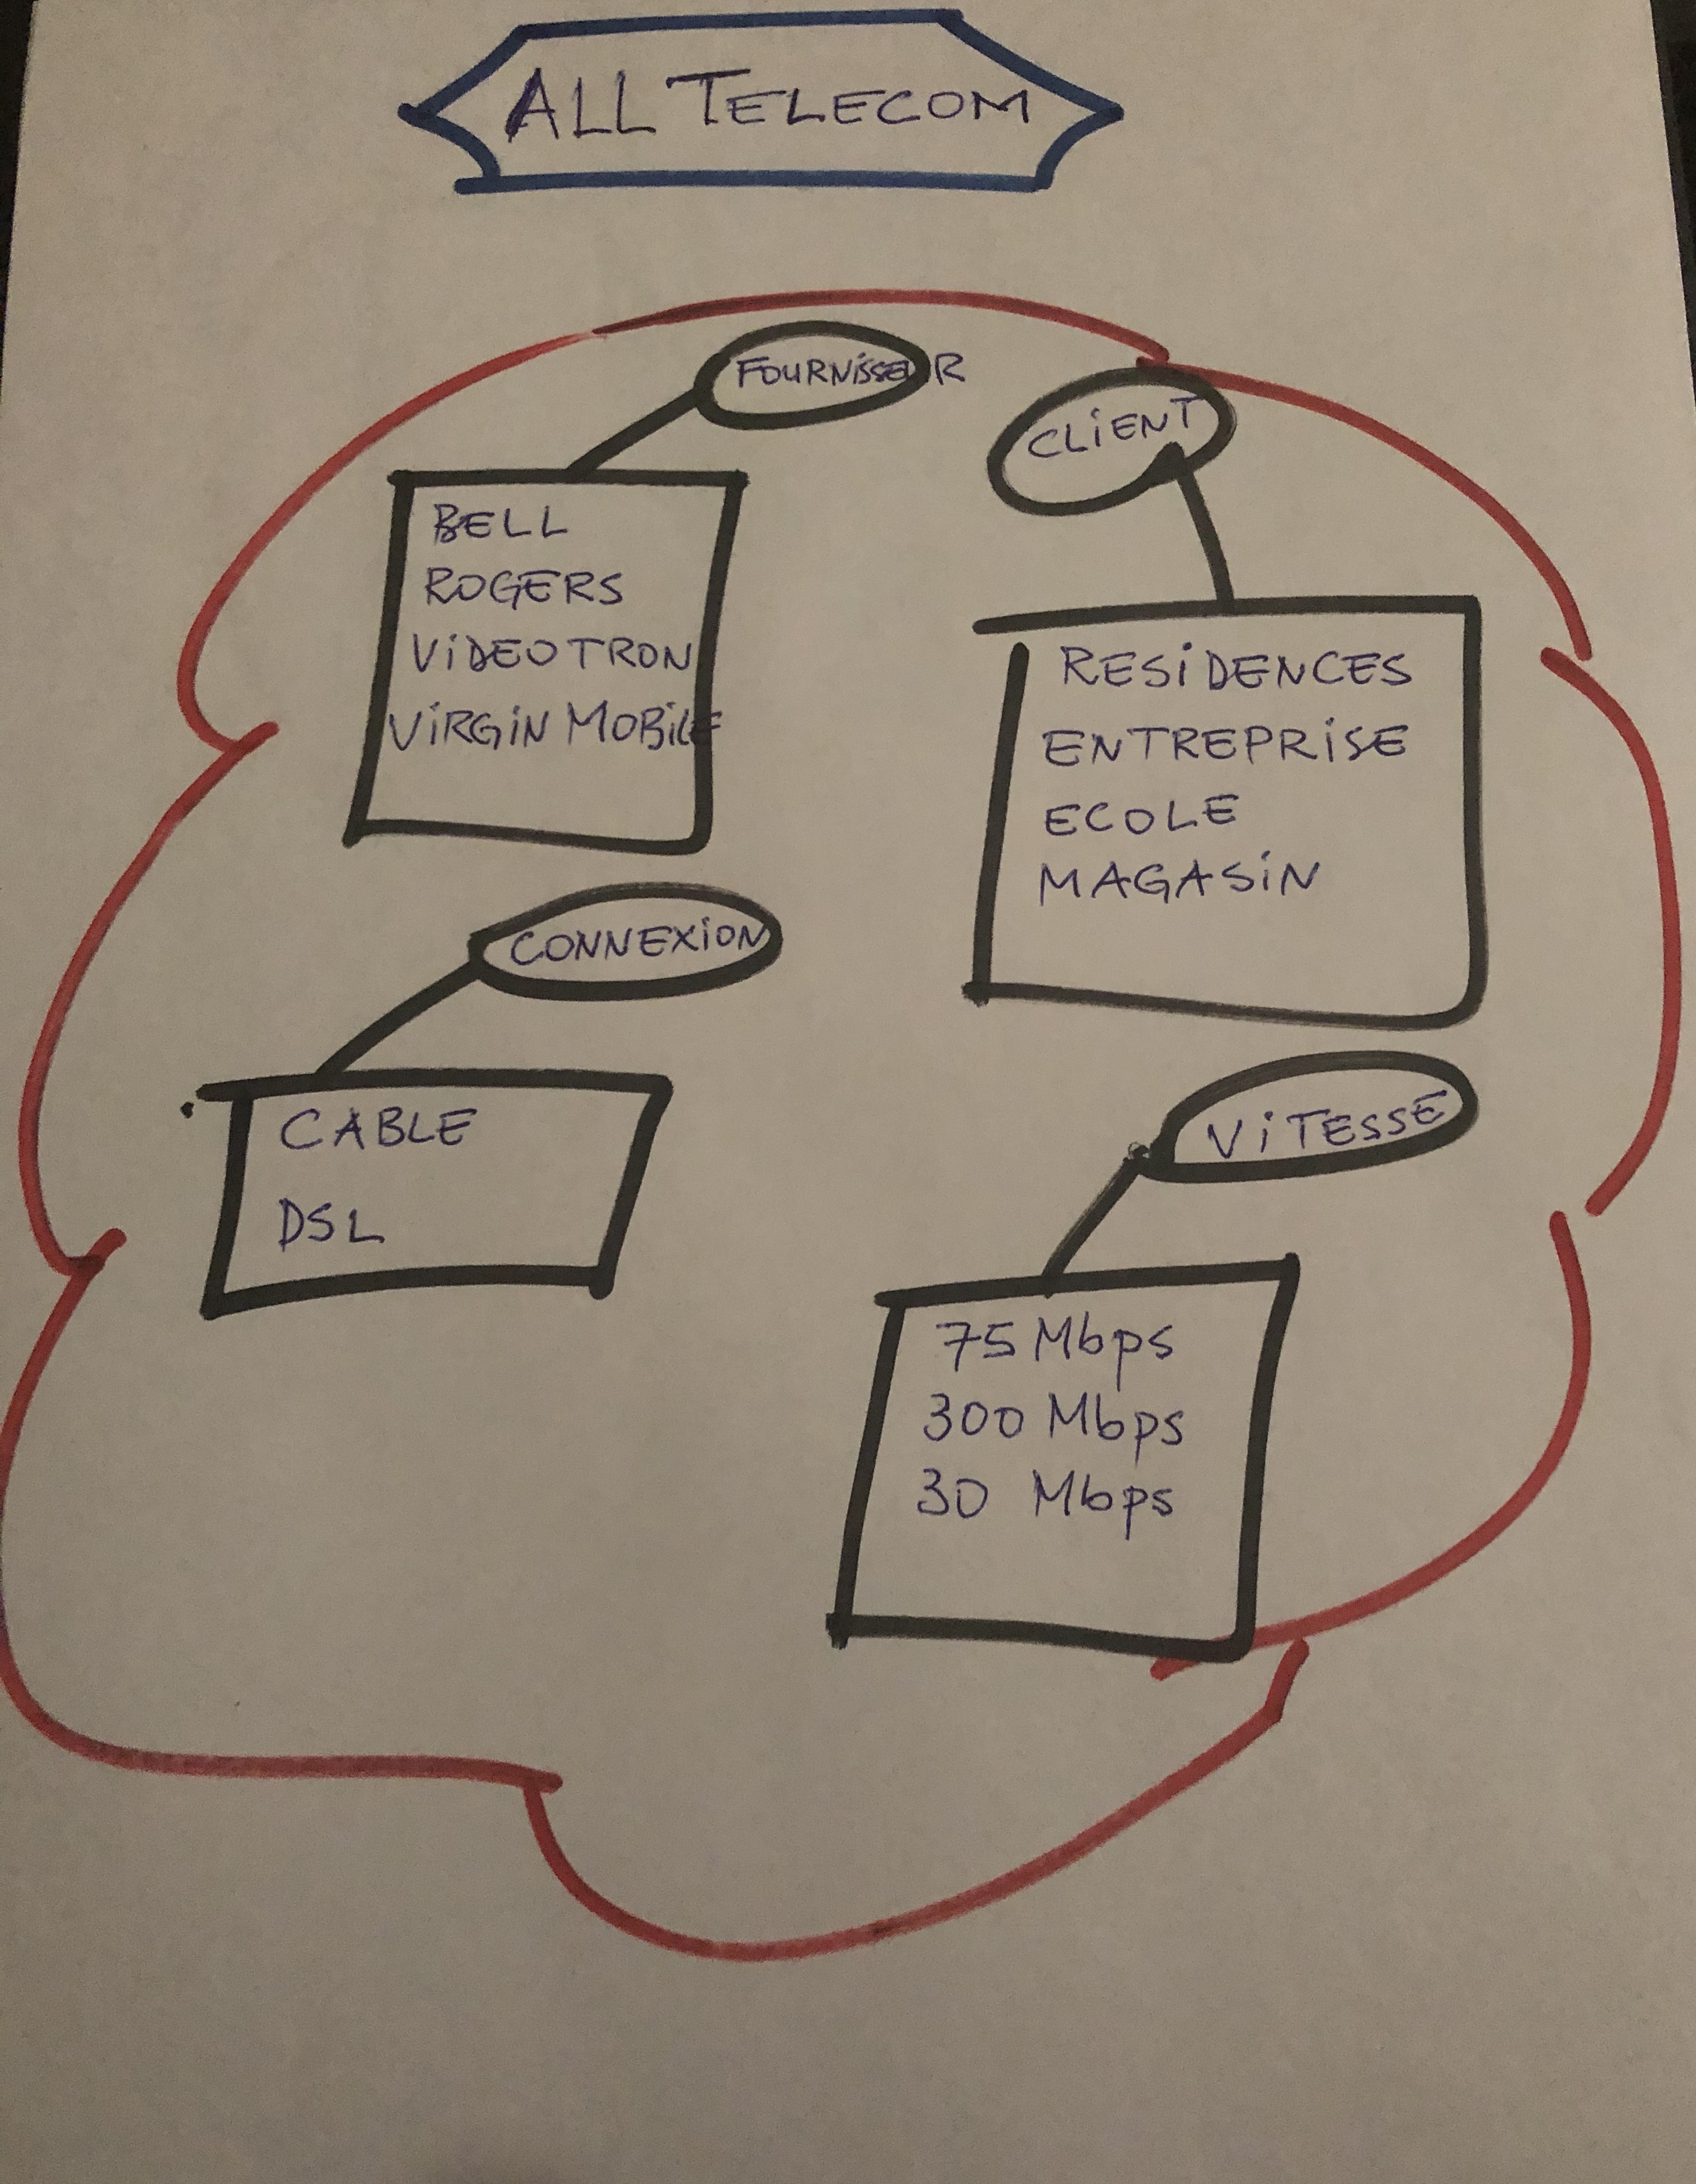 ALL TELECOM
FOURNISSEUR
BELL
ROGERS
VIDEOTRON
VIRGIN MOBILE
CLIENT
RESIDENCES
ENTREPRISE
ECOLE
MAGASIN
CONNEXION
CABLE
DSL
VITESSE
75 Mbps
300 Mbps
30 Mbps